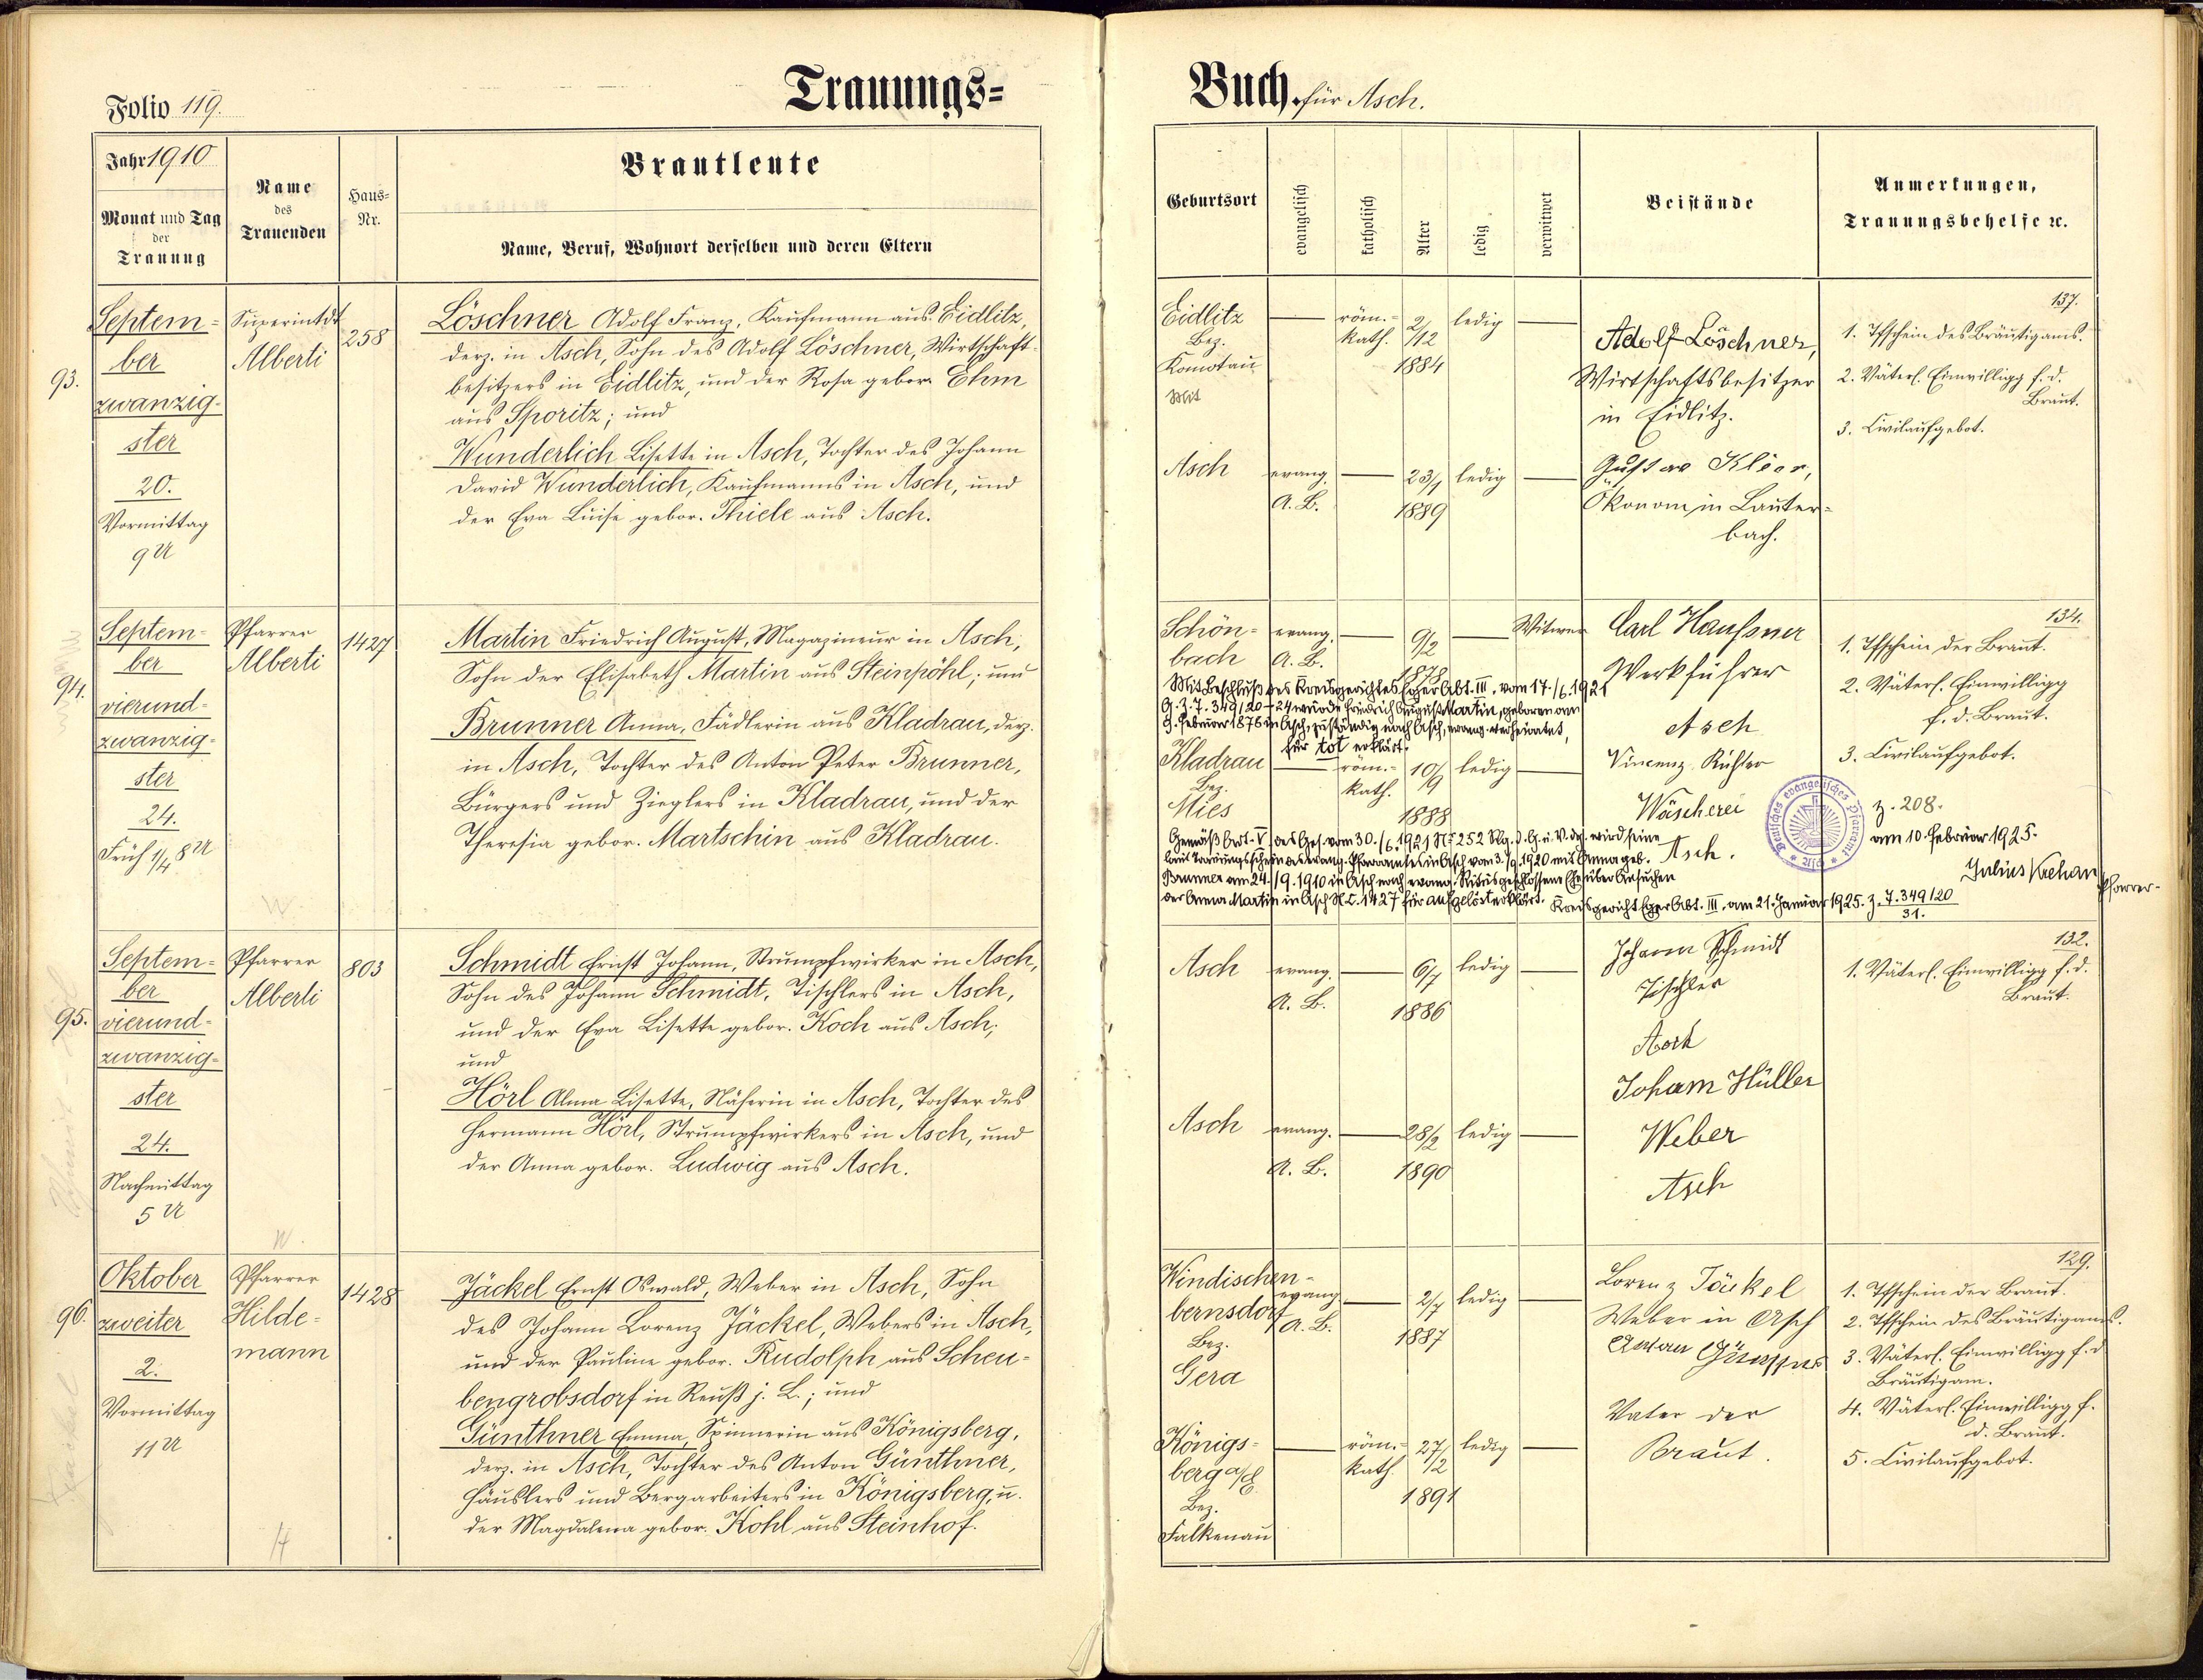 Folio 119.
Trauungs=
Jahr 1910
Monat und Tag
der
Trauung
Name
des
Trauenden
Haus=
Nr.
Brautleute
Name, Beruf, Wohnort derselben und deren Eltern
93.
Septem=
ber
zwanzig-
ster
20.
Vormittag
9 U
Superintdt
Alberti
258
Löschner Adolf Franz, Kaufmann aus Eidlitz,
derz. in Asch, Sohn des Adolf Löschner, Wirtschaft-
besitzers in Eidlitz, und der Rosa gebor. Ehm
aus Sporitz; und
Wunderlich Lisette in Asch, Tochter des Johann
David Wunderlich, Kaufmanns in Asch, und
der Eva Luise gebor. Thiele aus Asch.
94.
Septem=
ber
vierund=
zwanzig=
ster
24.
Früh 1/4 8 U
Pfarrer
Alberti
W.
1427
Martin Friedrich August, Magazineur in Asch,
Sohn der Elisabeth Martin aus Steinpöhl; und
Brunner Anna, Fädlerin aus Kladrau, derz.
in Asch, Tochter des Anton Peter Brunner,
Bürgers und Zieglers in Kladrau, und der
Theresia gebor. Martschin aus Kladrau.
95.
Septem=
ber
vierund=
zwanzig=
ster
24.
Nachmittag
5 U
Pfarrer
Alberti
W.
803
Schmidt Ernst Johann, Strumpfwirker in Asch,
Sohn des Johann Schmidt, Tischlers in Asch,
und der Eva Lisette gebor. Koch aus Asch;
und
Hörl Alma Lisette, Näherin in Asch, Tochter des
Hermann Hörl, Strumpfwirkers in Asch, und
der Anna gebor. Ludwig aus Asch.
96.
Oktober
zweiter
2.
Vormittag
11 U
Pfarrer
Hilde=
mann
H
1428
Jäckel Ernst Oswald, Weber in Asch, Sohn
des Johann Lorenz Jäckel, Webers in Asch,
und der Pauline gebor. Rudolph aus Scheu-
bengrobsdorf in Reuß j. L.; und
Günthner Emma, Spinnerin aus Königsberg,
derz. in Asch, Tochter des Anton Günthner,
Häuslers und Bergarbeiters in Königsberg, u.
der Magdalena gebor. Kohl aus Steinhof.
Buch für Asch.
Geburtsort
evangelisch
katholisch
Alter
ledig
verwitwet
Beistände
Anmerkungen,
Trauungsbehelfe ec.
Eidlitz
Bez.
Komotau
mit
röm.-
kath.
2/12
1884
ledig
Adolf Löschner,
Wirtschaftsbesitzer
in Eidlitz.
137.
1. Tfschein des Bräutigams.
2. Väterl. Einwilligg f. d.
Braut.
3. Civilaufgebot.
Asch
evang.
A. B.
23/1
1889
ledig
Gustav
Ökonom in Lauter=
bach.
Schön=
bach
evang.
A. B.
9/2
1878
Witwer
Carl Haußner
Werkführer
Asch
134.
1. Tfschein der Braut.
2. Väterl. Einwilligg
f. d. Braut.
3. Civilaufgebot.
Mit Beschluß des Kreisgerichtes Eger Abt. III. vom 17./6.1921
G. Z. T. 349/20-24 wurde Friedrich August Martin, geboren am
9. Februar 1878 in Asch, zuständig nach Asch, evang. verheiratet,
für tot erklärt.
Kladrau
Bez.
Mies
röm.-
kath.
10/9
1888
ledig
Vincenz Richter
Wäscherei
Asch.
Deutsches evangelisches Pfarramt
Asch
Z. 208.
am 10. Februar 1925.
Julius Krehan
Pfarrer.
Gemäß Art. V des Ges. vom 30./6.1921 Nr 252 Slg. d. G. u. V. dg. wird seine
laut Trauungsschein des evang. Pfarramtes in Asch vom 3./9.1920 mit Anna geb.
Brunner am 24./9.1910 in Asch nach evang. Ritus geschlossene Ehe über Ansuchen
der Anna Martin in Asch N.C. 1427 für aufgelöst erklärt. Kreisgericht Eger Abt. III. am 21. Januar 1925. Z. T. 349/20
31.
Asch
evang.
A. B.
6/7
1886
ledig
Johann Schmidt
Tischler
Asch
132.
1. Väterl. Einwilligg f. d.
Braut.
Asch
evang.
A. B.
28/2
1890
ledig
Johann Hüller
Weber
Asch
Windischen-
bernsdorf
Bez.
Gera
evang.
A. B.
2/7
1887
ledig
Lorenz Jäckel
Weber in Asch
129.
1. Tfschein der Braut.
2. Tfschein des Bräutigams.
3. Väterl. Einwilligg f. d
Bräutigam.
4. Väterl. Einwilligg f.
d. Braut.
5. Civilaufgebot.
Königs=
berg a/E
Bez.
Falkenau
röm.-
kath.
27/12
1891
ledig
Anton Günthner
Vater der
Braut.